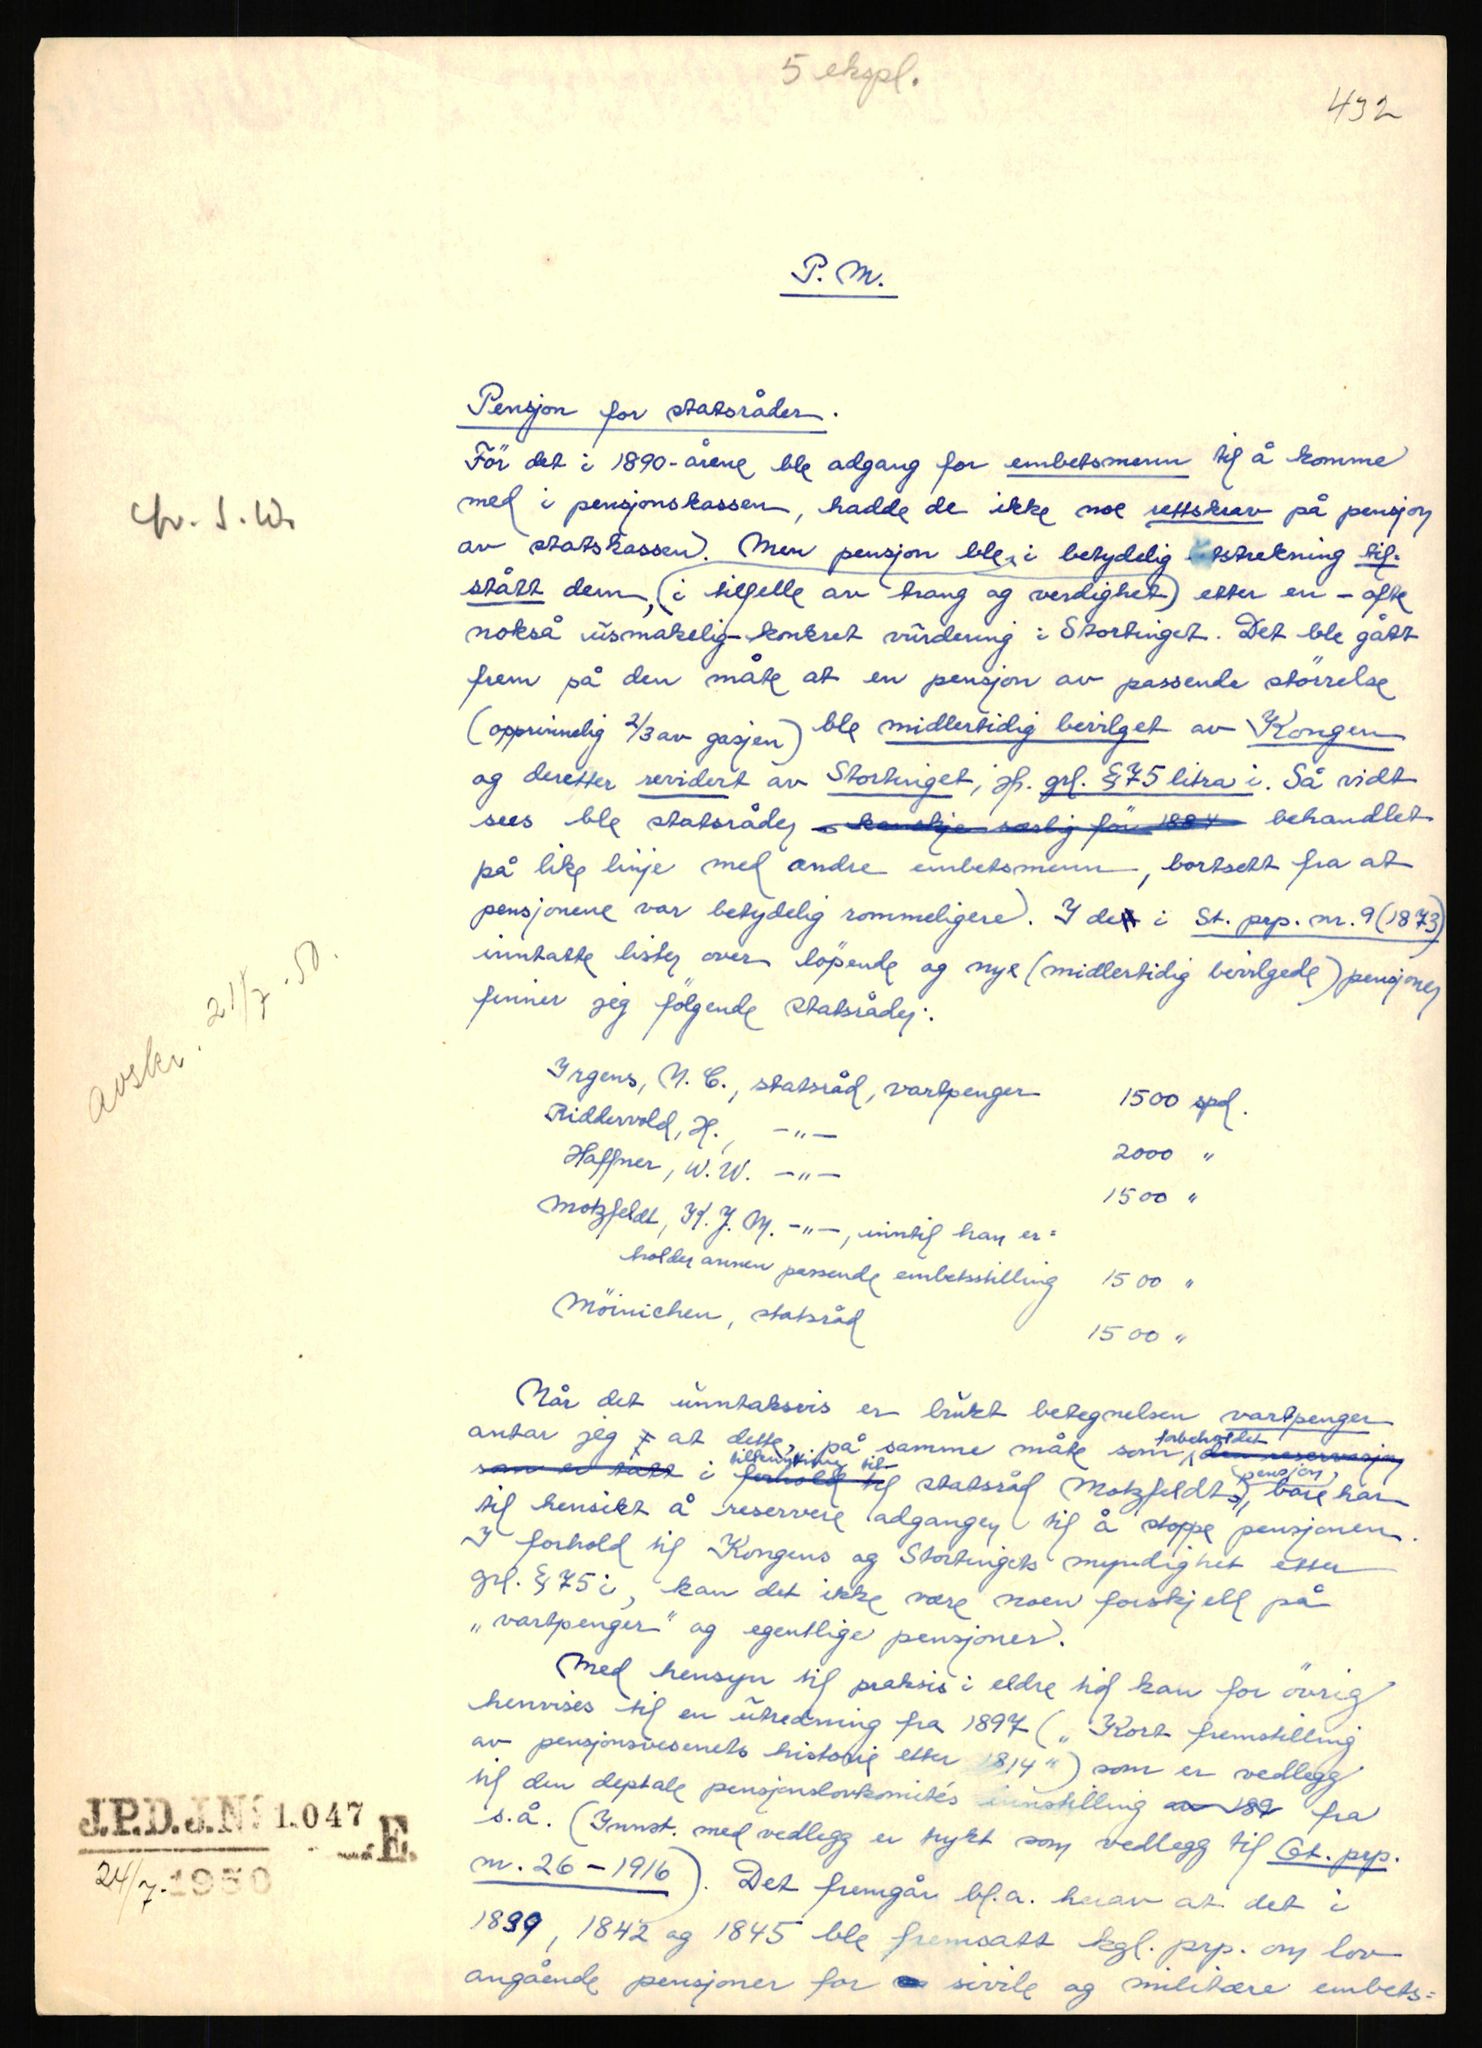 5 ekspl.
432
P. M.
Pensjon for statsråder.
För det i 1890-årene ble adgang for embetsmenn til å komme
med i pensjonskassen, hadde de ikke noe rettskrav på pensjon
av statskassen. Men pensjon ble i betydelig utstrekning til=
stått dem, (i tilfelle av trang og verdighet) etter en - ofte
nokså usmakelig - konkret vurdering i Stortinget. Det ble gått
frem på den måte at en pensjon av passende störrelse
(opprinnelig 2/3 av gasjen) ble midlertidig bevilget av Kongen
og deretter revidert av Stortinget, jfr. grl. § 75 litra i. Så vidt
sees ble statsråder - kanskje særlig för 1884 - behandlet
på like linje med andre embetsmenn, bortsett fra at
pensjonene var betydelig rommeligere. I de i St. prp. nr. 9 (1873)
inntatte lister over löpende og nye (midlertidig bevilgede) pensjoner
finner jeg fölgende statsråder:
cfr. S. W.
avskr. 21/7-50.
Irgens, N. C., statsråd, vartpenger 1500 spd.
Riddervold, H., -"- 2000 "
Haffner, W. W. -"- 1500 "
Motzfeldt, K. J. M. -"-, inntil han er=
holder annen passende embetsstilling 1500 "
Möinichen, statsråd 1500 "
Når det unntaksvis er brukt betegnelsen vartpenger
antar jeg at dette, på samme måte som forbeholdet den reservasjon
som er tatt i tilknytning til forhold til statsråd Motzfeldts pensjon, bare har
til hensikt å reservere adgangen til å stoppe pensjonen.
I forhold til Kongens og Stortingets myndighet etter
grl. § 75 i, kan det ikke være noen forskjell på
"vartpenger" og egentlige pensjoner.
Med hensyn til praksis i eldre tid kan for övrig
henvises til en utredning fra 1897 ("Kort fremstilling
av pensjonsvesenets historie etter 1814") som er vedlegg
til den deptale pensjonslovkomités innstilling av 189 fra
s.å. (Innst. med vedlegg er trykt som vedlegg til Ot. prp.
nr. 26 - 1916). Det fremgår bl.a. herav at det i
1839, 1842 og 1845 ble fremsatt kgl. prp. om lov
angående pensjoner for sivile og militære embets=
J.P.D.J.Nº 1.047 E.
24/7. 1950